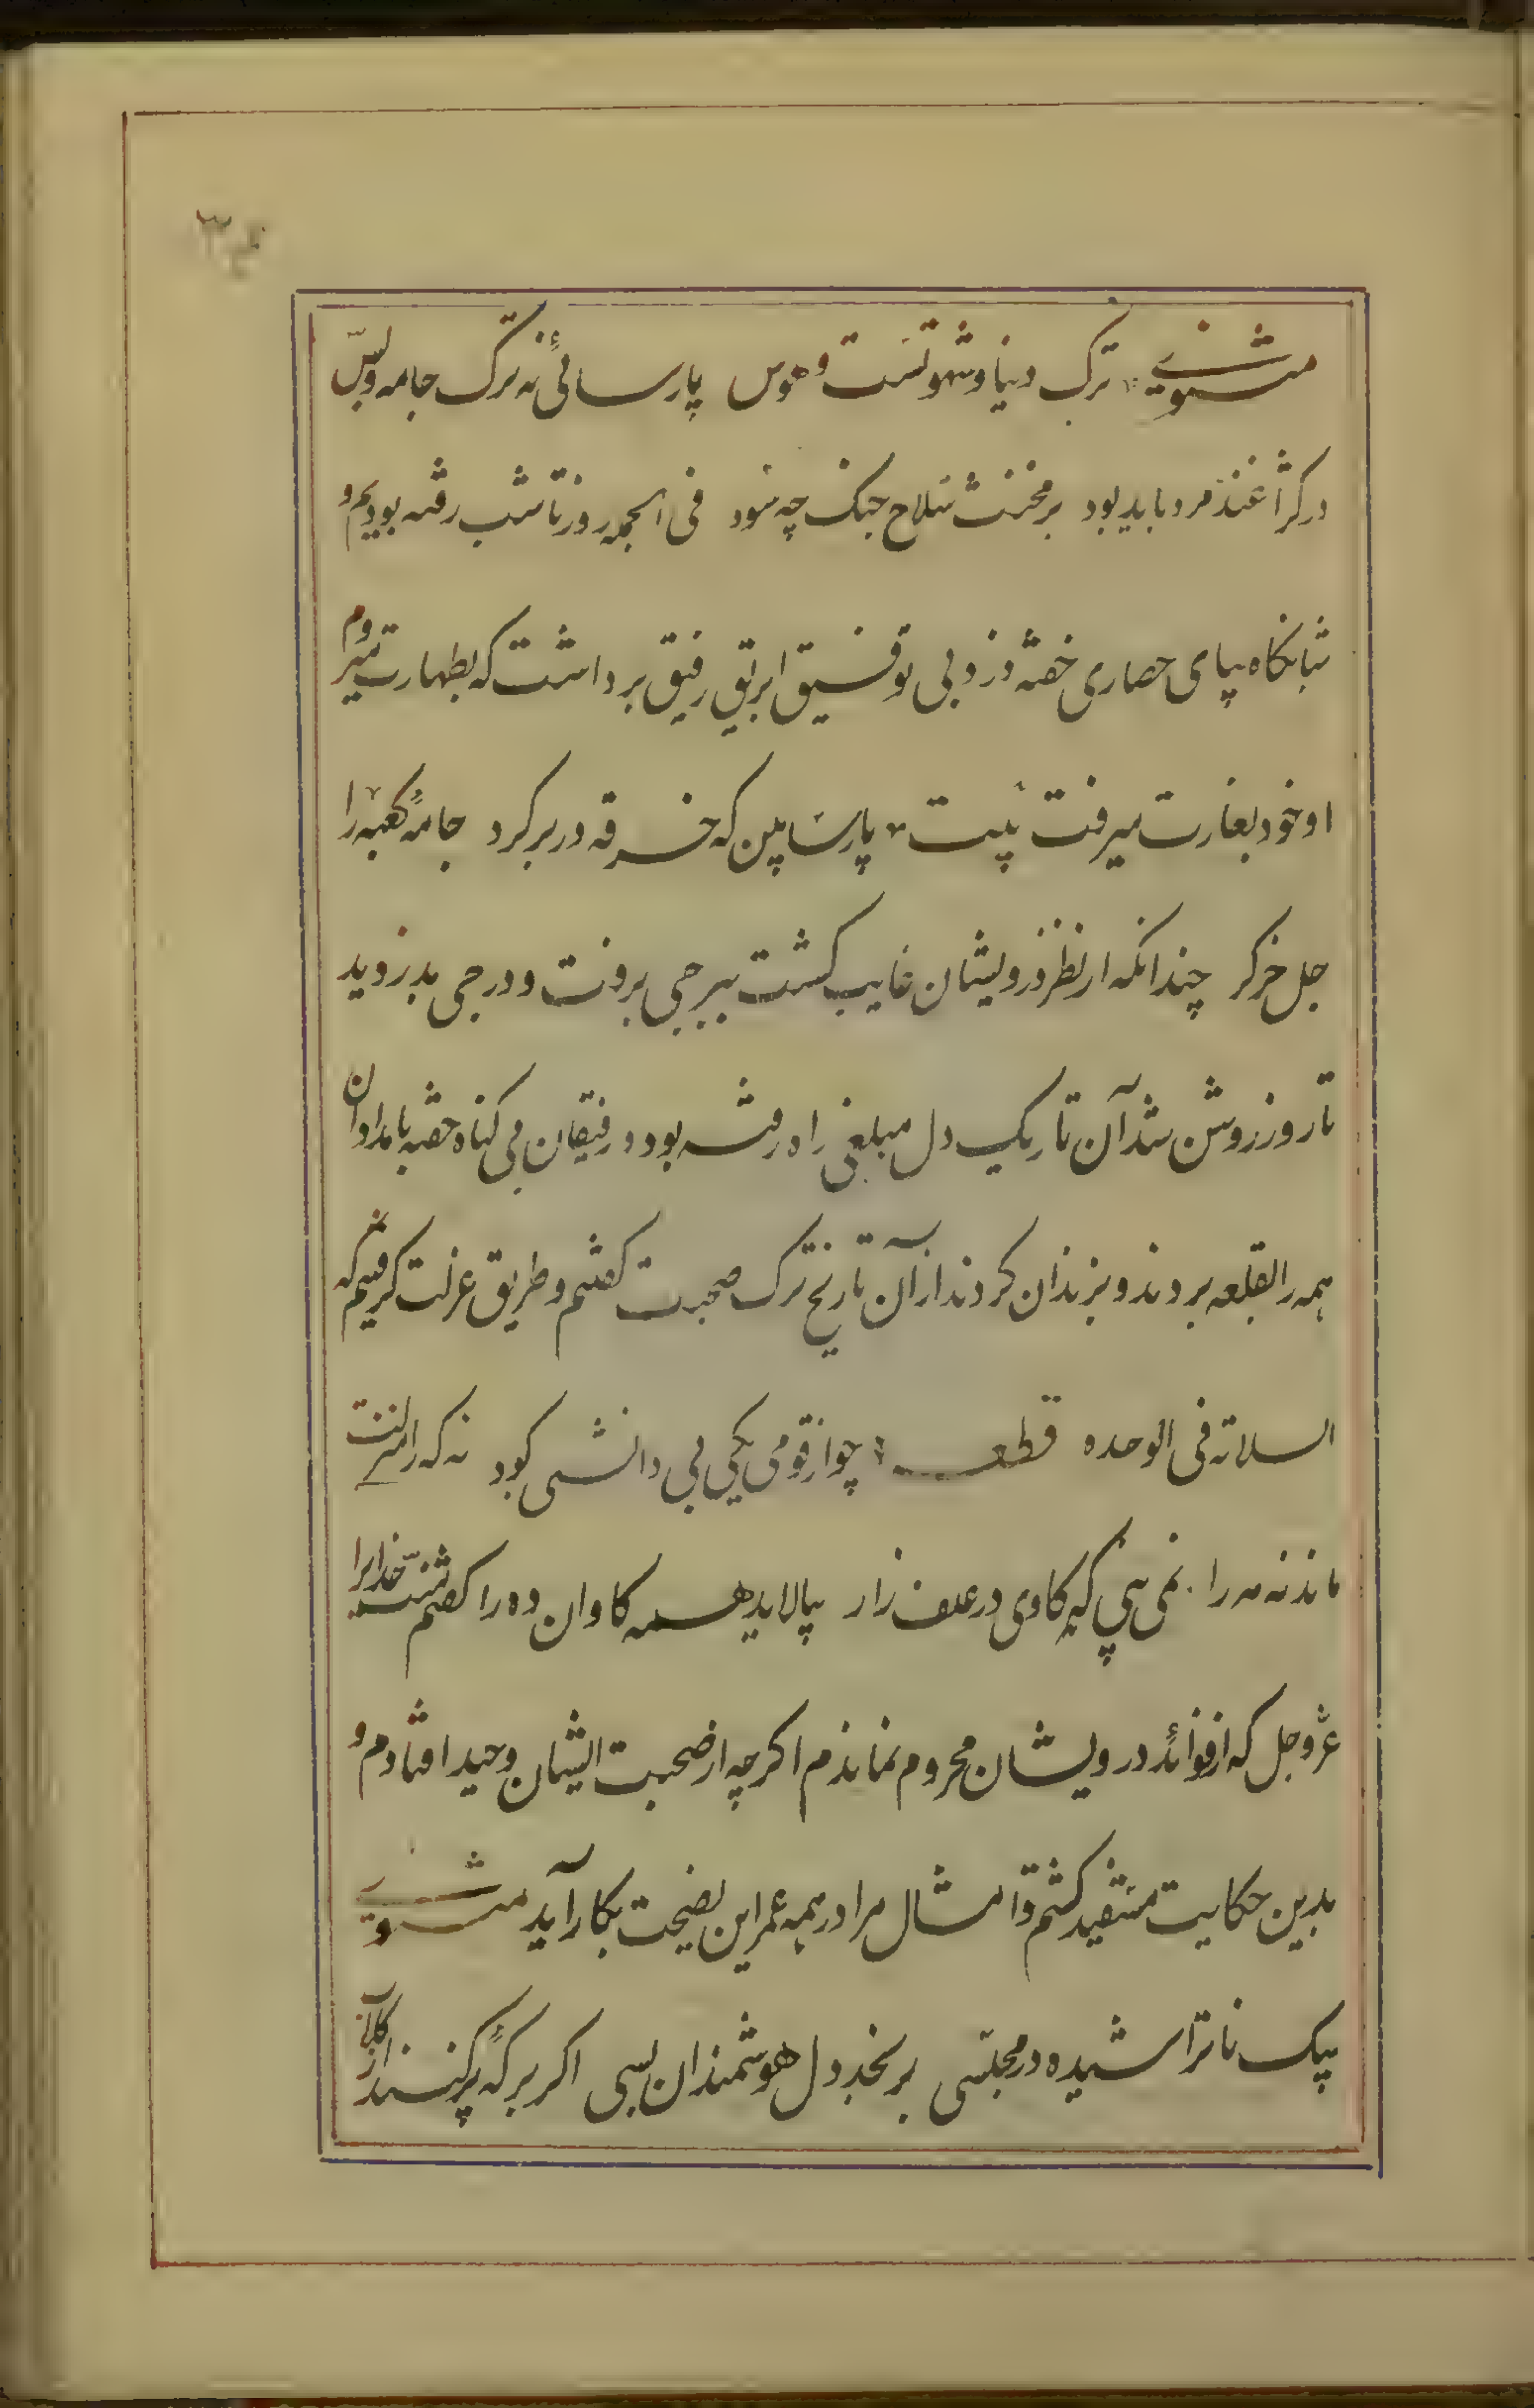 مثنوی ترک دنیا و شهوتست و هوس پارسائی نه ترک جامه و بس
در کژاغند مرد باید بود بر مخنث سلاح جنک چه سود فی الجمله روز تا شب رفته بودیم و
شبانکاه بپای حصاری خفته دزد بی توفیق ابریق رفیق برداشت که بطهارت میروم
او خود بغارت میرفت بیت پارسا بین که خرقه در بر کرد جامهٔ کعبه را
جل خر کر چندانکه از نظر درویشان غایب کشت ببرجی برفت و درجی بدزدید
تا روز روشن شد آن تاریک دل مبلغی راه رفته بود و رفیقان بی کناه خفته بامدادان
همه را بقلعه بردند و بزندان کردند از آن تاریخ ترک صحبت کفتیم و طریق عزلت کرفتیم که
السلامة فی الوحده قطعه چو از قومی یکی بی دانشی کرد نه که را منزلت
ماند نه مه را نمی بینی که کاوی در علف زار بیالاید همه کاوان ده را کفتم منت خدایرا
عز و جل که از فوائد درویشان محروم نماندم اکرچه از صحبت ایشان وحید افتادم و
بدین حکایت مستفید کشتم و امثال مرا در همه عمر این نصیحت بکار آید مثنوی
بیک ناتراشیده در مجلسی برنجد دل هوشمندان بسی اکر برکهٔ پر کنند از کلاب